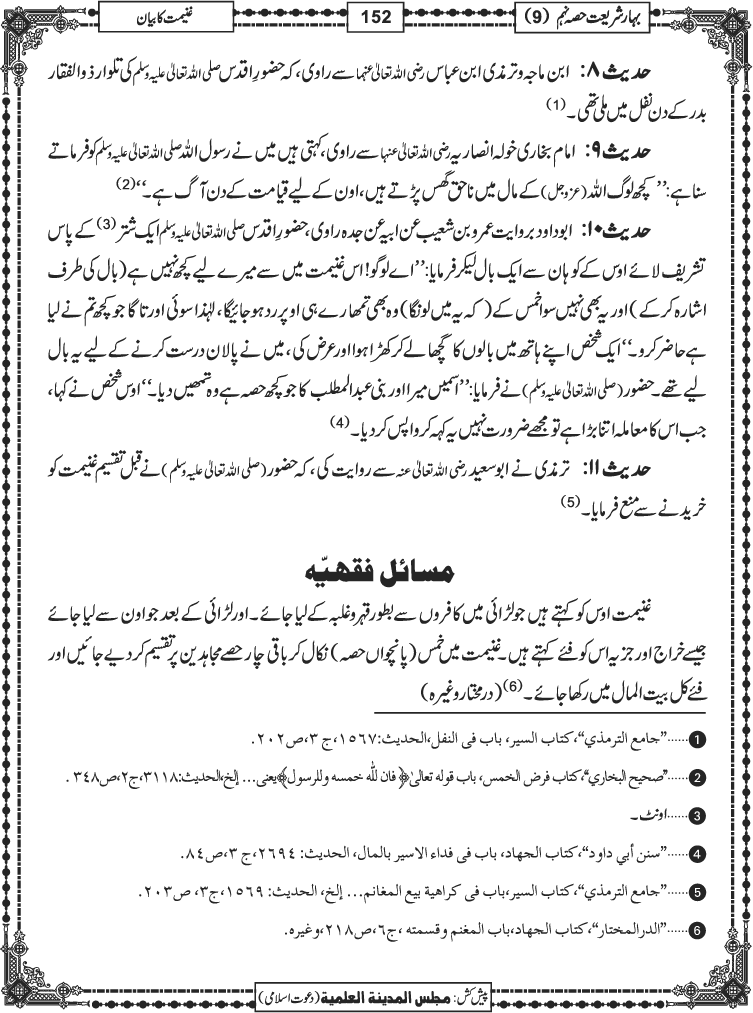 بہارِ شریعت حصہ نہم (9)
152
غنیمت کا بیان
حدیث ۸: ابن ماجہ و ترمذی ابن عباس رضی اللہ تعالیٰ عنہما سے راوی، کہ حضورِ اقدس صلی اللہ تعالیٰ علیہ وسلم کی تلوار ذوالفقار
بدر کے دن نفل میں ملی تھی۔ (1)
حدیث ۹: امام بخاری خولہ انصاریہ رضی اللہ تعالیٰ عنہا سے راوی، کہتی ہیں میں نے رسول اللہ صلی اللہ تعالیٰ علیہ وسلم کو فرماتے
سنا ہے: ’’کچھ لوگ اللہ (عزوجل) کے مال میں ناحق گھس پڑتے ہیں، اون کے لیے قیامت کے دن آگ ہے۔‘‘ (2)
حدیث ۱۰: ابوداود بروایت عمرو بن شعیب عن ابیہ عن جدہ راوی، حضورِ اقدس صلی اللہ تعالیٰ علیہ وسلم ایک شتر (3) کے پاس
تشریف لائے اوس کے کوہان سے ایک بال لیکر فرمایا: ’’اے لوگو! اس غنیمت میں سے میرے لیے کچھ نہیں ہے (بال کی طرف
اشارہ کر کے) اور یہ بھی نہیں سوا خمس کے (کہ یہ میں لونگا) وہ بھی تمھارے ہی اوپر رد ہو جائیگا، لہٰذا سوئی اور تاگا جو کچھ تم نے لیا
ہے حاضر کرو۔‘‘ ایک شخص اپنے ہاتھ میں بالوں کا گچھا لے کر کھڑا ہوا اور عرض کی، میں نے پالان درست کرنے کے لیے یہ بال
لیے تھے۔ حضور (صلی اللہ تعالیٰ علیہ وسلم) نے فرمایا: ’’اسمیں میرا اور بنی عبدالمطلب کا جو کچھ حصہ ہے وہ تمھیں دیا۔‘‘ اوس شخص نے کہا،
جب اس کا معاملہ اتنا بڑا ہے تو مجھے ضرورت نہیں یہ کہہ کر واپس کر دیا۔ (4)
حدیث ۱۱: ترمذی نے ابوسعید رضی اللہ تعالیٰ عنہ سے روایت کی، کہ حضور (صلی اللہ تعالیٰ علیہ وسلم) نے قبل تقسیم غنیمت کو
خریدنے سے منع فرمایا۔ (5)
مسائل فقھیّہ
غنیمت اوس کو کہتے ہیں جو لڑائی میں کافروں سے بطور قہر و غلبہ کے لیا جائے۔ اور لڑائی کے بعد جو اون سے لیا جائے
جیسے خراج اور جزیہ اس کو فئے کہتے ہیں۔ غنیمت میں خمس (پانچواں حصہ) نکال کر باقی چار حصے مجاہدین پر تقسیم کر دیے جائیں اور
فئے کل بیت المال میں رکھا جائے۔ (6) (درمختار وغیرہ)
1 ......”جامع الترمذي“، کتاب السیر، باب فی النفل، الحدیث: ١٥٦٧، ج ٣، ص ٢٠٢.
2 ......”صحیح البخاري“، کتاب فرض الخمس، باب قوله تعالیٰ ﴿فان لله خمسه وللرسول﴾ یعنی... إلخ، الحدیث: ٣١١٨، ج٢، ص ٣٤٨.
3 ......اونٹ۔
4 ......”سنن أبي داود“، کتاب الجهاد، باب فی فداء الاسیر بالمال، الحدیث: ٢٦٩٤، ج ٣، ص ٨٤.
5 ......”جامع الترمذي“، کتاب السیر، باب فی کراهیة بیع المغانم... إلخ، الحدیث: ١٥٦٩، ج٣، ص ٢٠٣.
6 ......”الدرالمختار“، کتاب الجهاد، باب المغنم وقسمته، ج٦، ص ٢١٨، وغیره.
پیش کش: مجلس المدینة العلمیة (دعوت اسلامی)